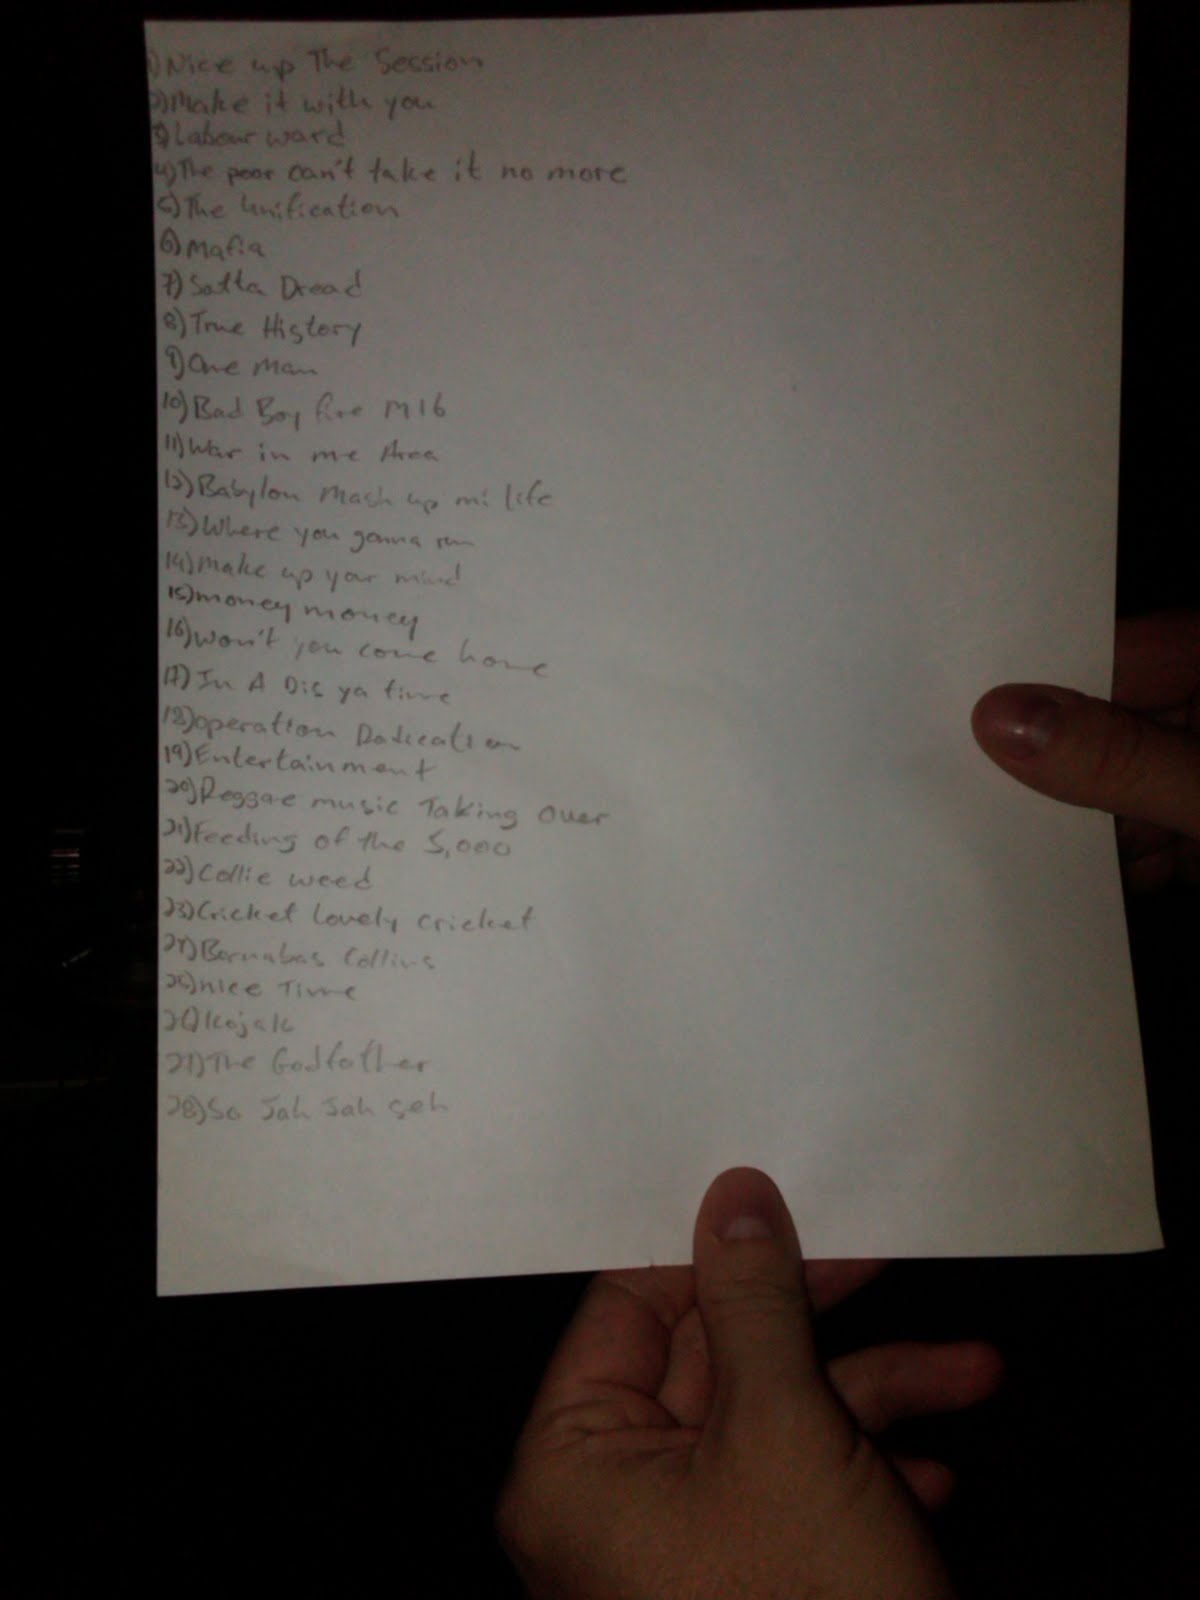 1) Nice up The Session
2) Make it with you
3) Labour ward
4) The poor can't take it no more
5) The Unification
6) Mafia
7) Satta Dread
8) True History
9) One Man
10) Bad Boy fire M16
11) War in me Area
12) Babylon Mash up mi life
13) Where you gonna run
14) Make up your mind
15) money money
16) Won't you come home
17) In A Dis ya time
18) operation Dadication
19) Entertainment
20) Reggae music Taking Over
21) Feeding of the 5,000
22) Collie weed
23) Cricket Lovely cricket
24) Barnabas Collins
25) nice Time
26) Kojak
27) The Godfather
28) So Jah Jah seh